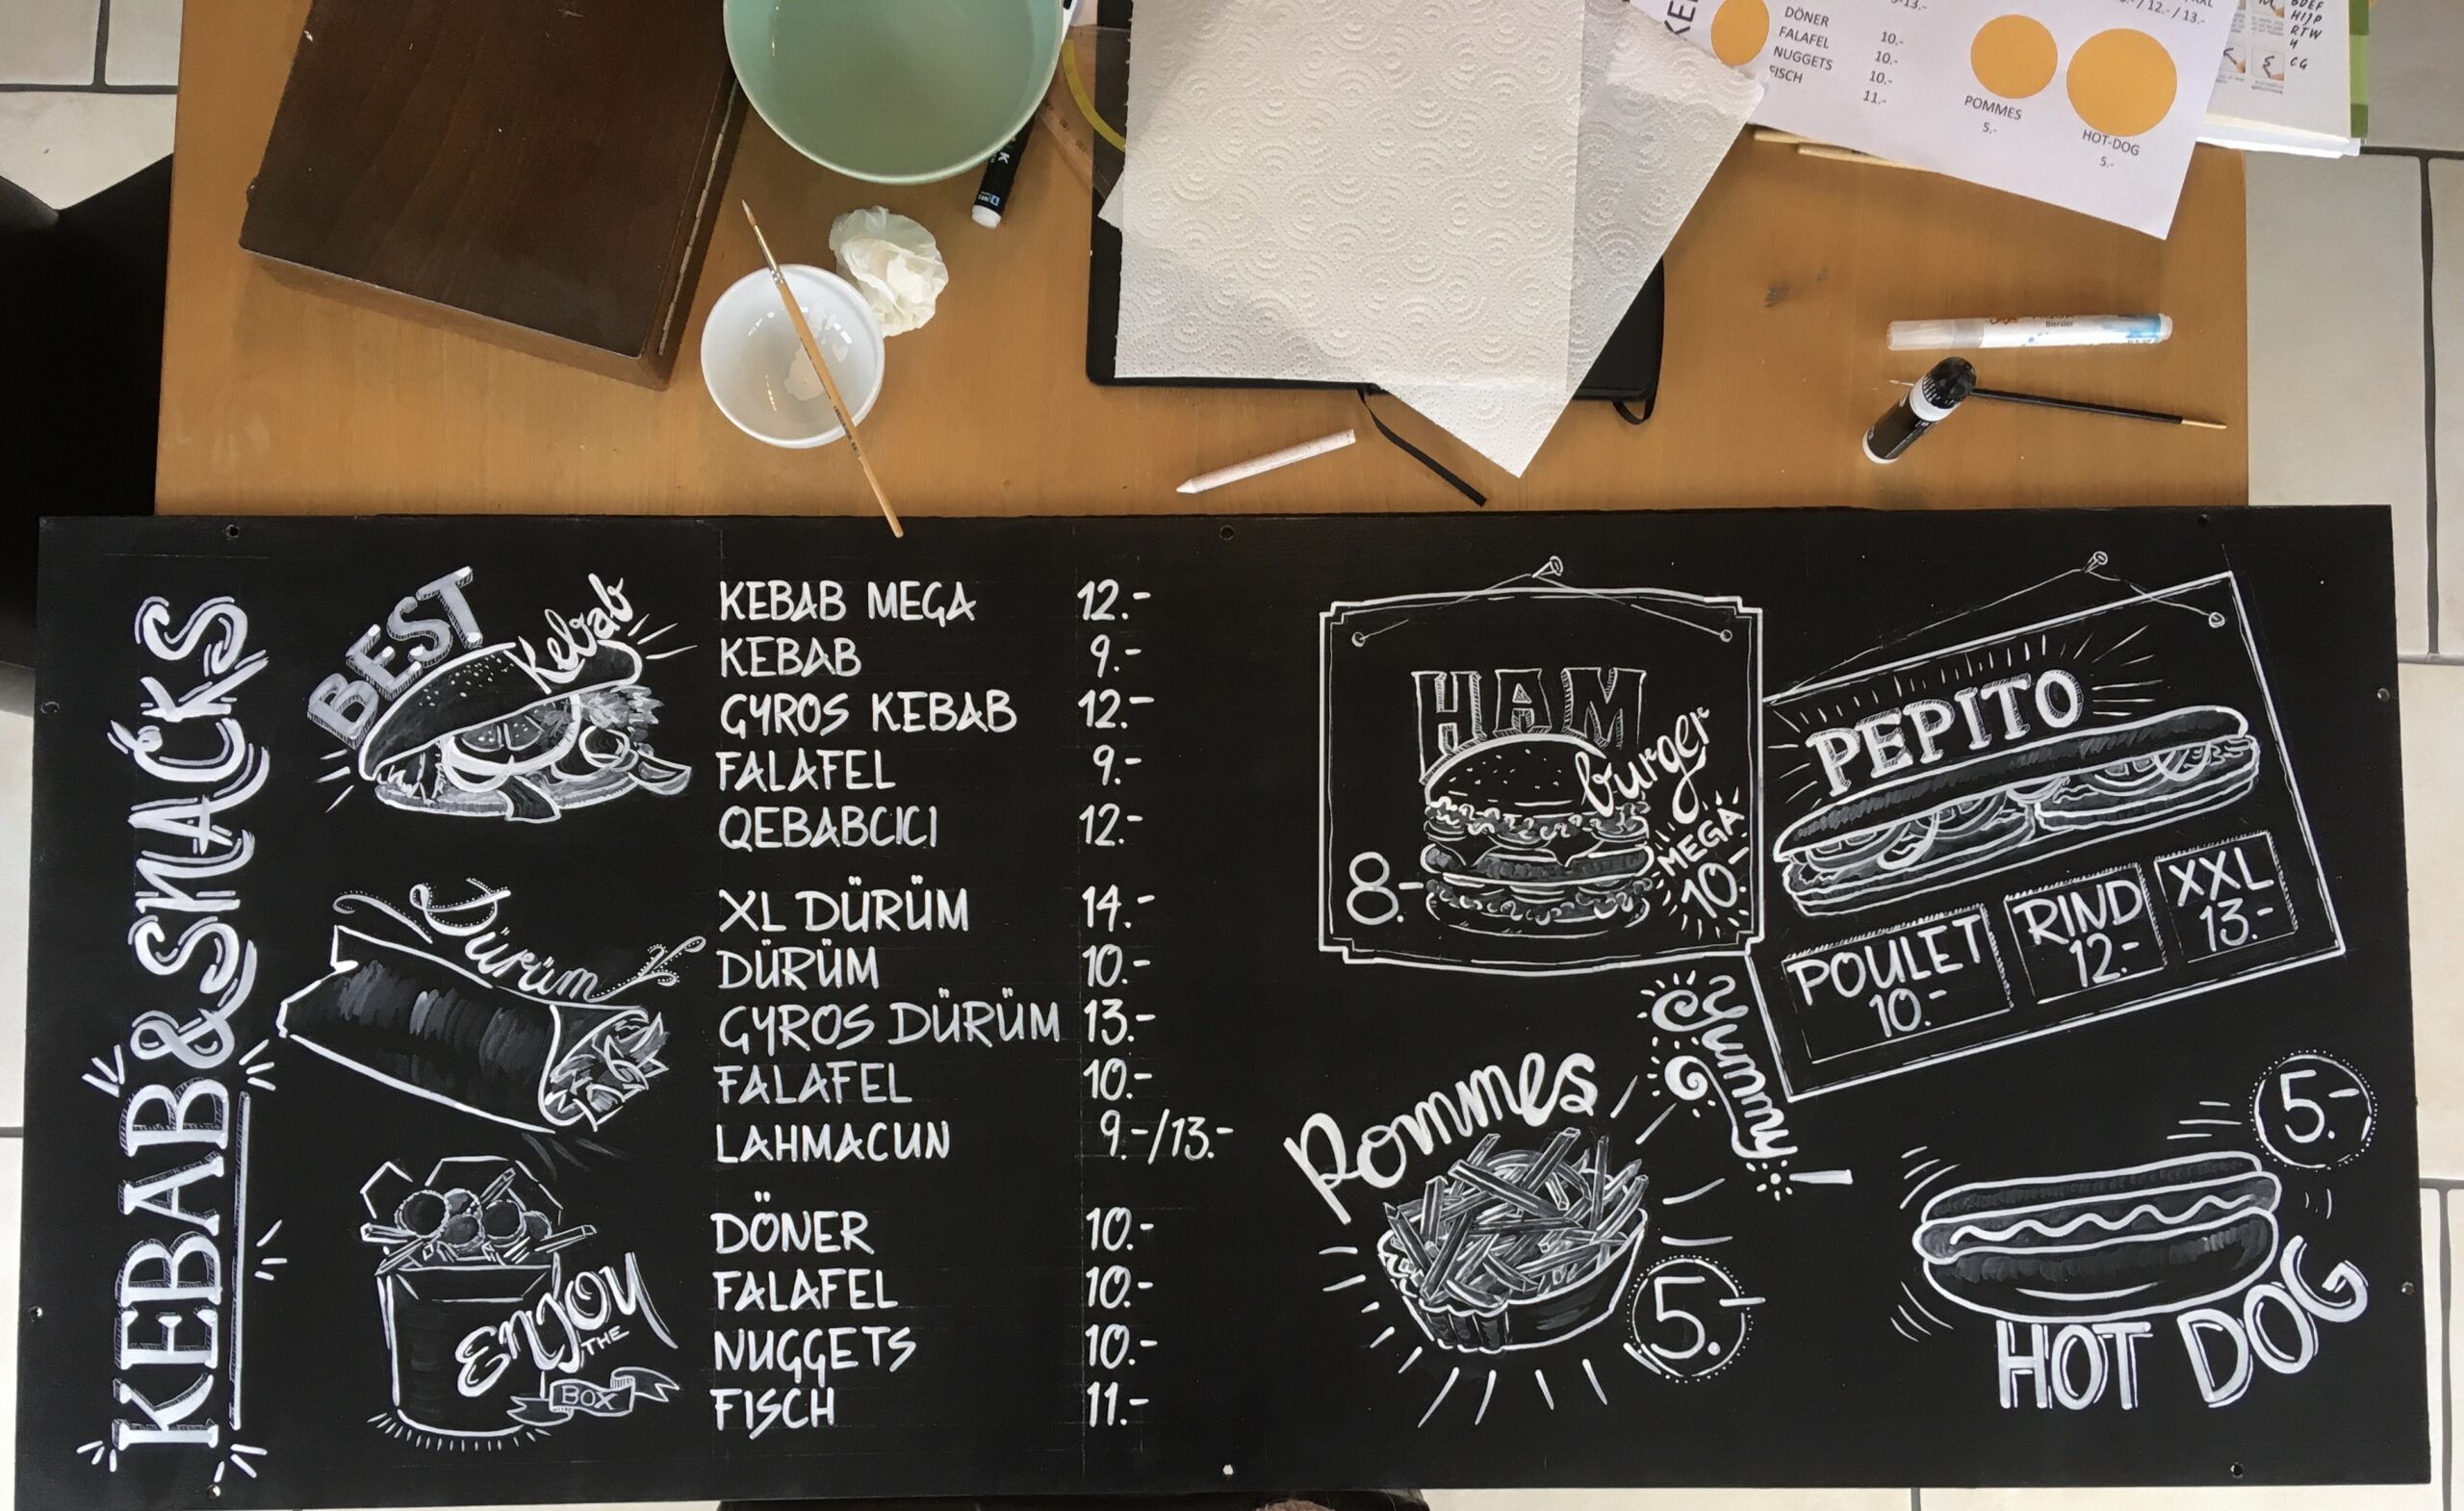 DÖNER 10.-
FALAFEL 10.-
NUGGETS 10.-
FISCH 11.-
POMMES
5.-
HOT-DOG
5.-
/ 12.- / 13.-
KEBAB & SNACKS
BEST
Kebab
KEBAB MEGA 12.-
KEBAB 9.-
GYROS KEBAB 12.-
FALAFEL 9.-
QEBABCICI 12.-
Dürüm
XL DÜRÜM 14.-
DÜRÜM 10.-
GYROS DÜRÜM 13.-
FALAFEL 10.-
LAHMACUN 9.-/13.-
Enjoy
THE
BOX
DÖNER 10.-
FALAFEL 10.-
NUGGETS 10.-
FISCH 11.-
HAM
burger
8.-
MEGA
10.-
PEPITO
POULET
10.-
RIND
12.-
XXL
13.-
Yummy!
Pommes
5.-
5.-
HOT DOG